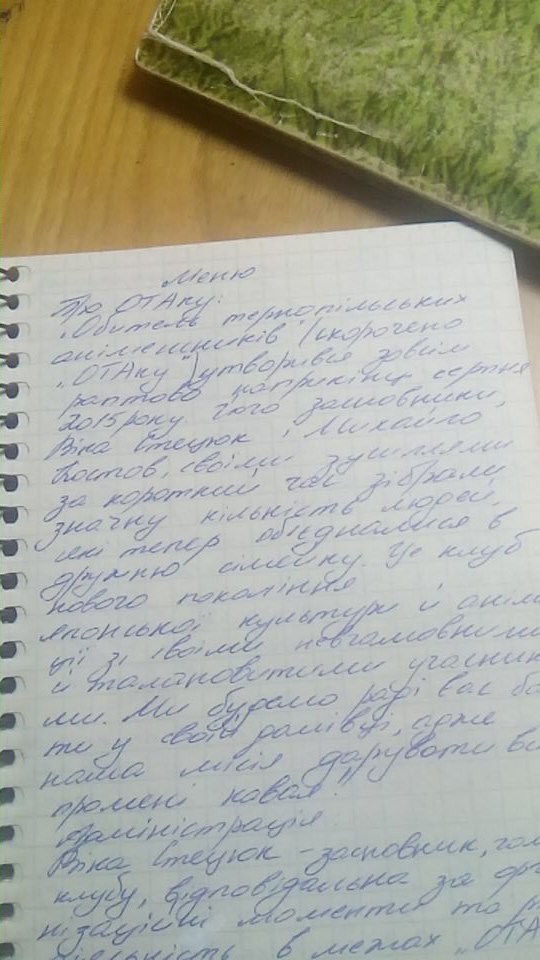 Меню
Про ОТАку:
„Обитель тернопільських
анімешників" (скорочено
„ОТАку") утворився зовсім
раптово наприкінці серпня
2015 року. Його засновники,
Віка Стецюк і Михайло
Костов, своїми зусиллями
за короткий час зібрали
значну кількість людей,
які тепер об'єдналися в
дружню сімейку. Це клуб
нового покоління
японської культури й аніма
ції зі своїми невгамовними
й талановитими учасника
ми. Ми будемо раді вас ба
ти у своїй домівці, адже
наша місія дарувати
промені кавая!"
Адміністрація
Віка Стецюк - засновник, гол
клубу, відповідальна за орга
нізаційні моменти та
діяльність в межах „ОТА